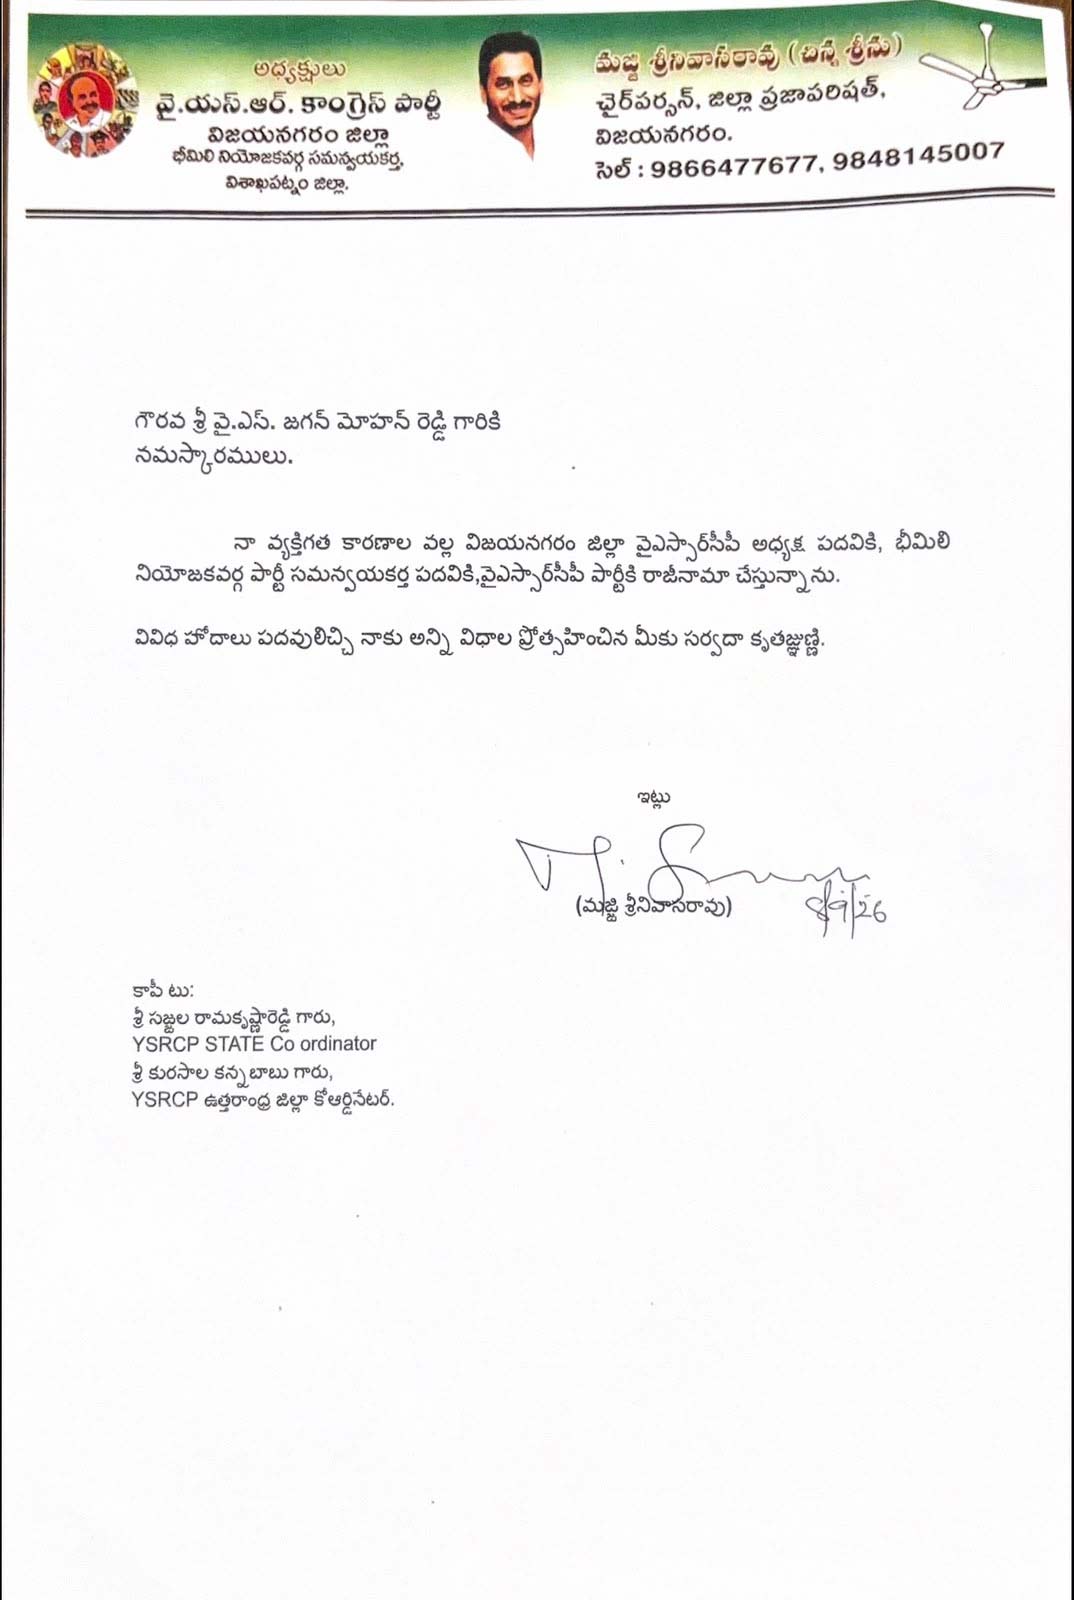 అధ్యక్షులు
వై.యస్.ఆర్. కాంగ్రెస్ పార్టీ
విజయనగరం జిల్లా
భీమిలి నియోజకవర్గ సమన్వయకర్త,
విశాఖపట్నం జిల్లా.
మజ్జి శ్రీనివాసరావు (చిన్న శ్రీను)
ఛైర్‌పర్సన్, జిల్లా ప్రజాపరిషత్,
విజయనగరం.
సెల్ : 9866477677, 9848145007
గౌరవ శ్రీ వై.ఎస్. జగన్ మోహన్ రెడ్డి గారికి
నమస్కారములు.
నా వ్యక్తిగత కారణాల వల్ల విజయనగరం జిల్లా వైఎస్సార్‌సీపీ అధ్యక్ష పదవికి, భీమిలి
నియోజకవర్గ పార్టీ సమన్వయకర్త పదవికి,వైఎస్సార్‌సీపీ పార్టీకి రాజీనామా చేస్తున్నాను.
వివిధ హోదాలు పదవులిచ్చి నాకు అన్ని విధాల ప్రోత్సహించిన మీకు సర్వదా కృతజ్ఞుణ్ణి.
ఇట్లు
(మజ్జి శ్రీనివాసరావు)
8/9/26
కాపీ టు:
శ్రీ సజ్జల రామకృష్ణారెడ్డి గారు,
YSRCP STATE Co ordinator
శ్రీ కురసాల కన్నబాబు గారు,
YSRCP ఉత్తరాంధ్ర జిల్లా కోఆర్డినేటర్.